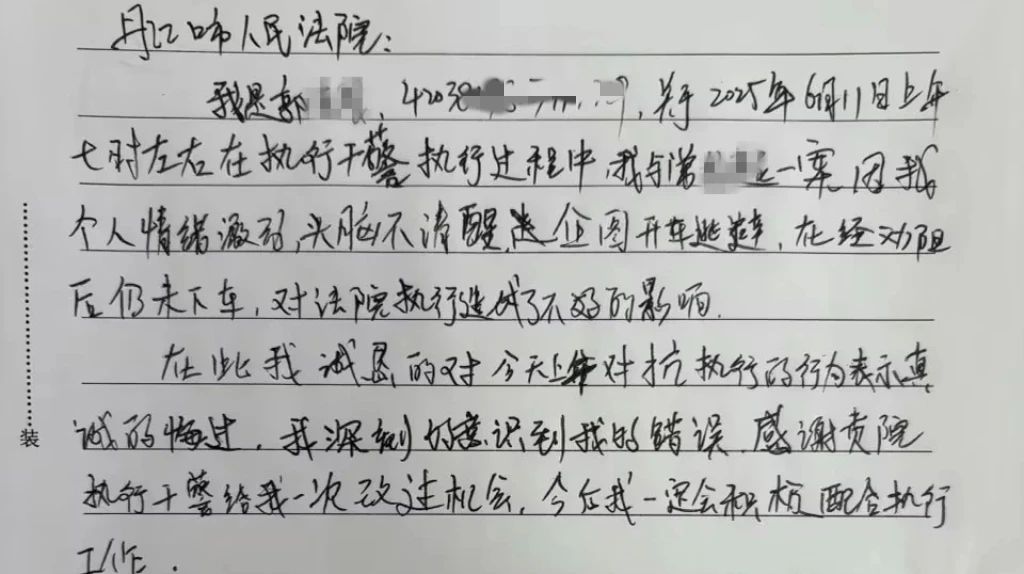 丹江口市人民法院：
我是郭 ，420 ，关于2025年6月11日上午
七时左右在执行干警执行过程中，我与 一案因我
个人情绪激动，头脑不清醒，企图开车逃走，在经劝阻
后仍未下车，对法院执行造成了不好的影响。
在此我诚恳的对今天上午对抗执行的行为表示真
诚的悔过，我深刻的意识到我的错误，感谢贵院
执行干警给我一次改过机会，今后我一定会积极配合执行
工作。
装